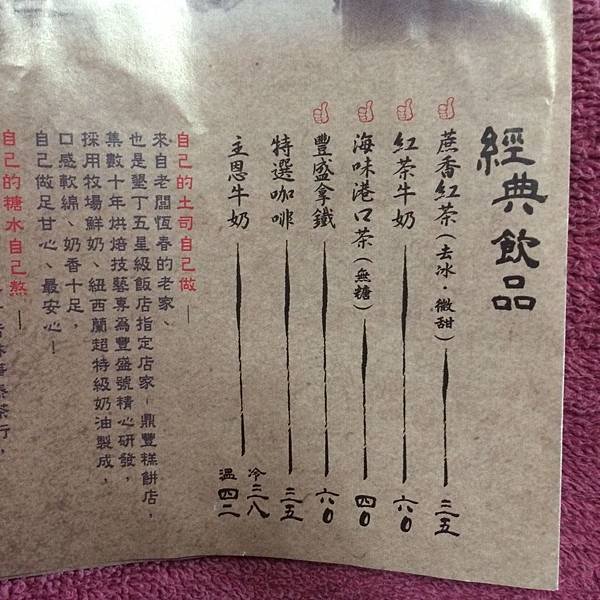 經典飲品
蔗香紅茶(去冰·微甜) 三五
紅茶牛奶 六0
海味港口茶(無糖) 四0
豐盛拿鐵 六0
特選咖啡 三五
主恩牛奶 冷三八 溫四二
自己的土司自己做—
來自老闆恆春的老家、
也是墾丁五星級飯店指定店家-鼎豐糕餅店，
集數十年烘焙技藝專為豐盛號精心研發，
採用牧場鮮奶、紐西蘭超特級奶油製成，
口感軟綿、奶香十足，
自己做足甘心、最安心—
自己的糖水自己熬—